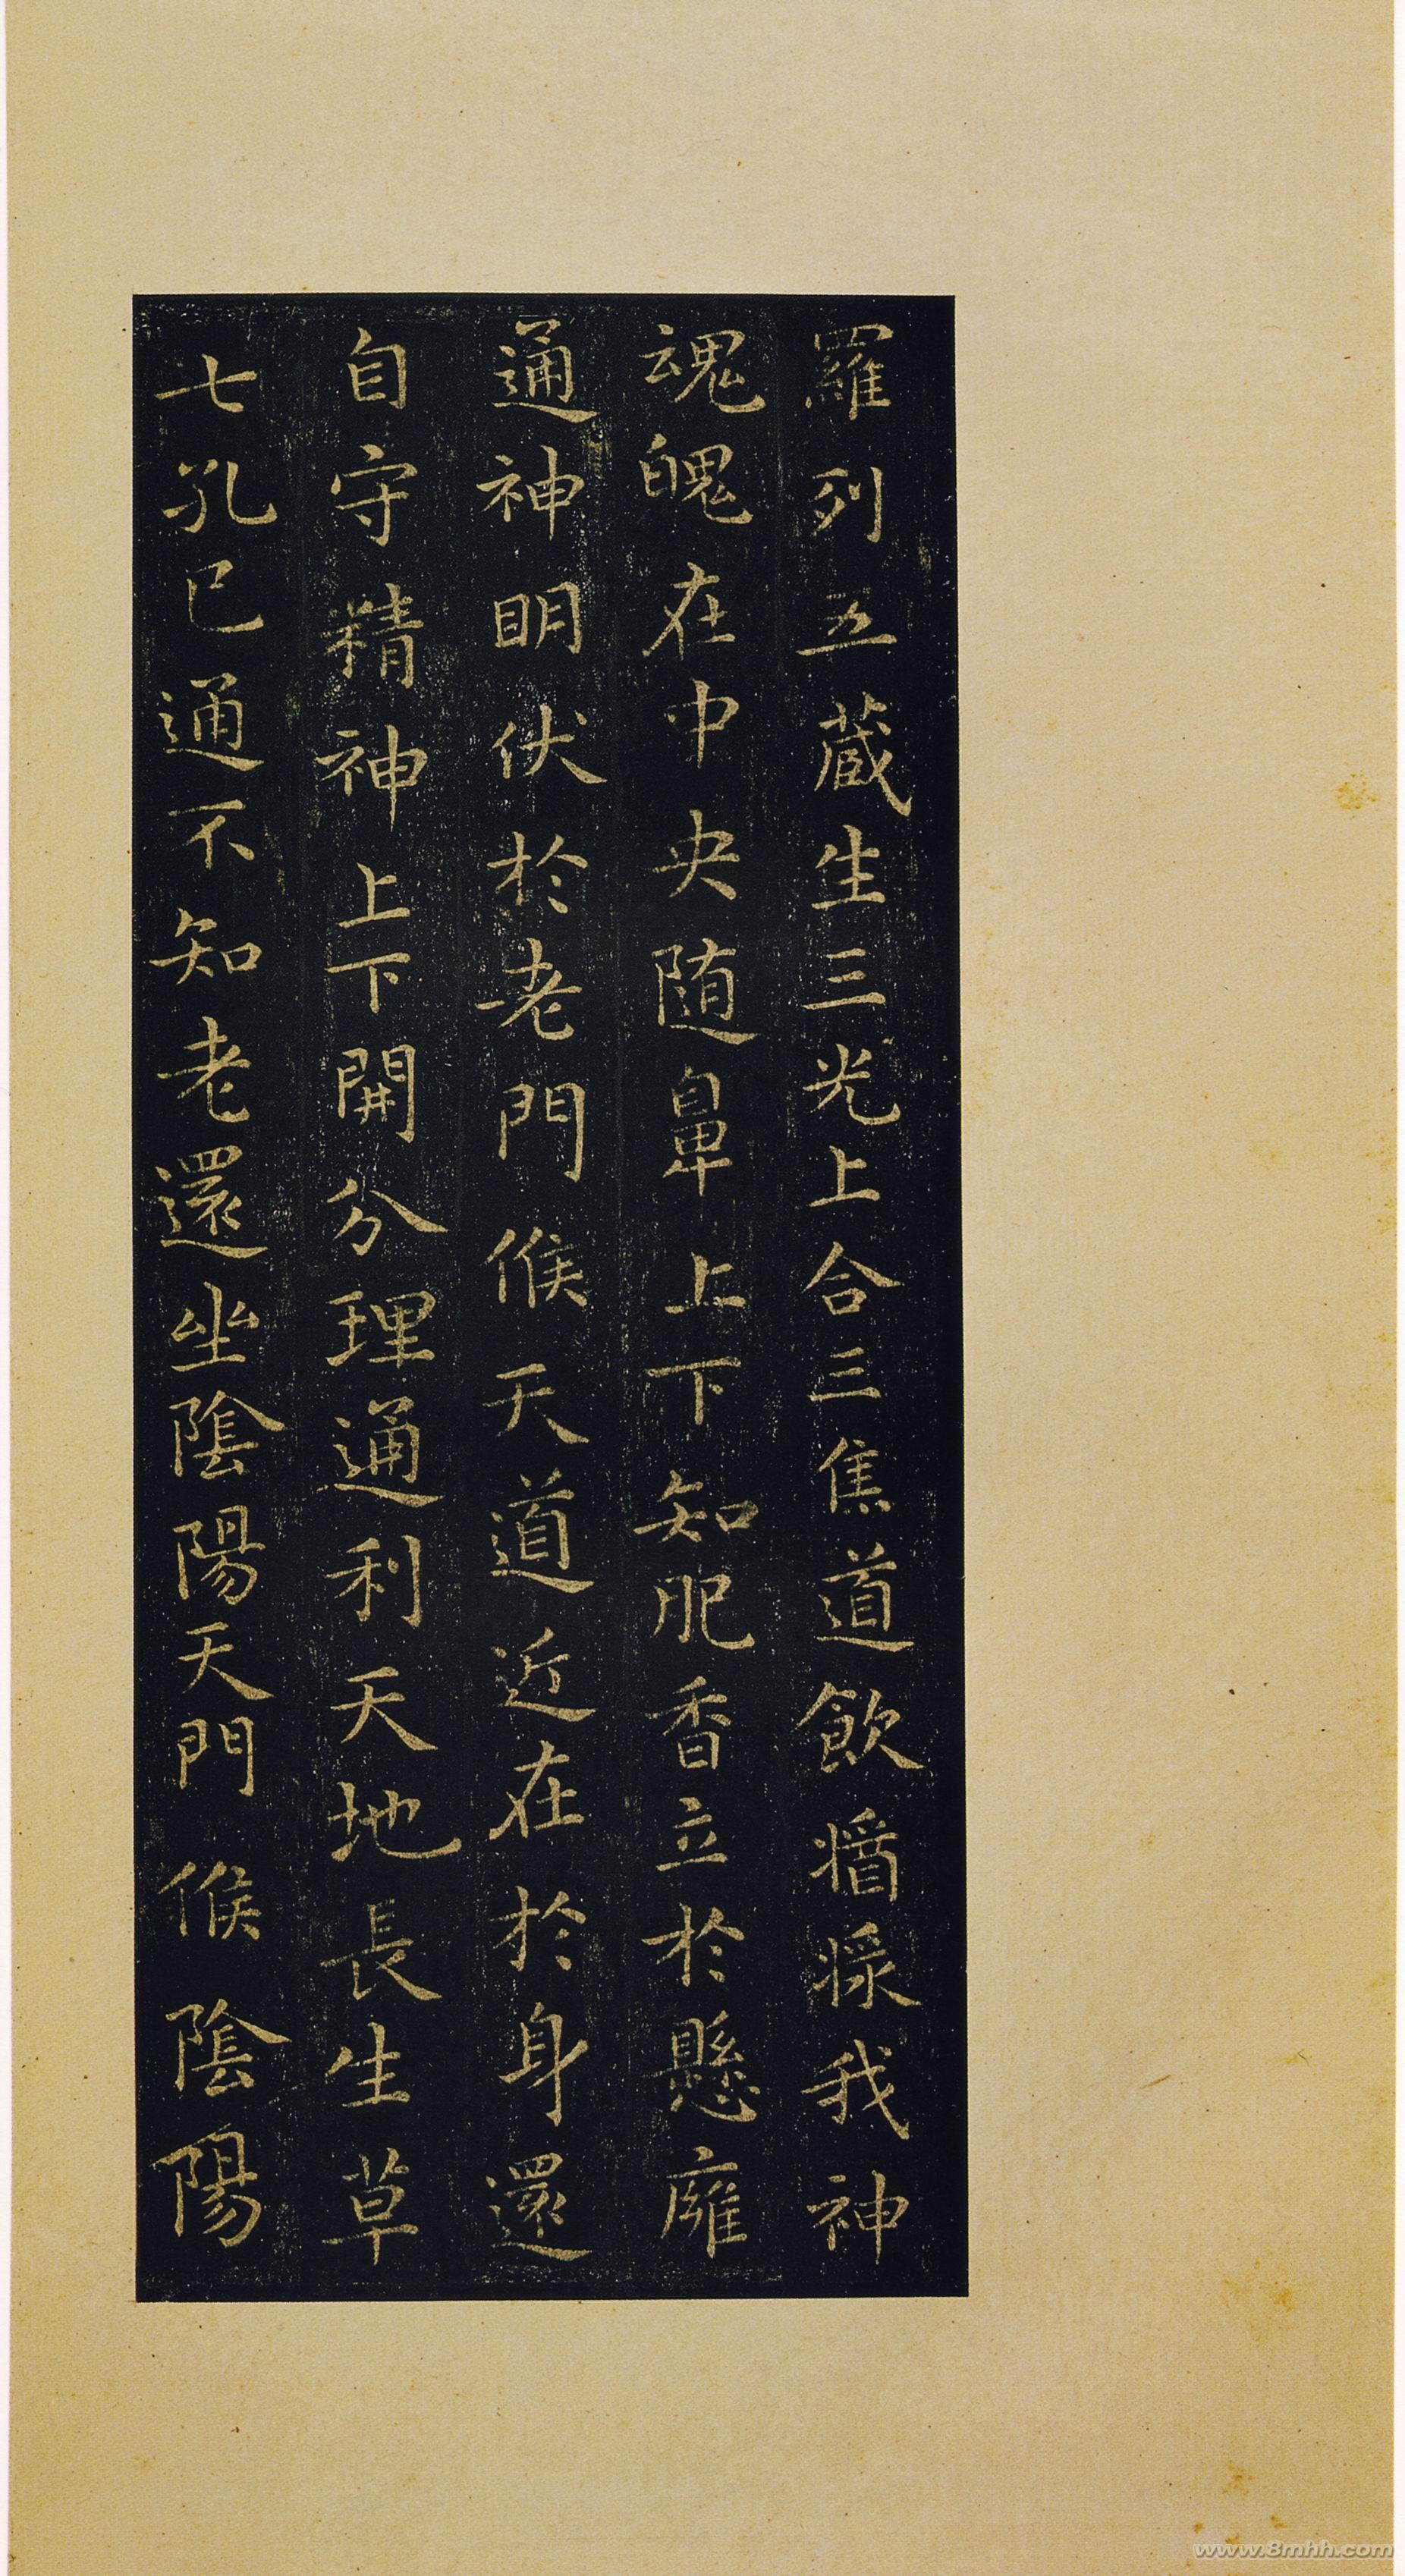 羅列五蔵生三光上合三焦道飲漿我神
魂魄在中央随鼻上下知肥香立於懸廱
通神明伏於老門候天道近在於身還
自守精神上下開分理通利天地長生草
七孔已通不知老還坐陰陽天門候陰陽
www.8mhh.com